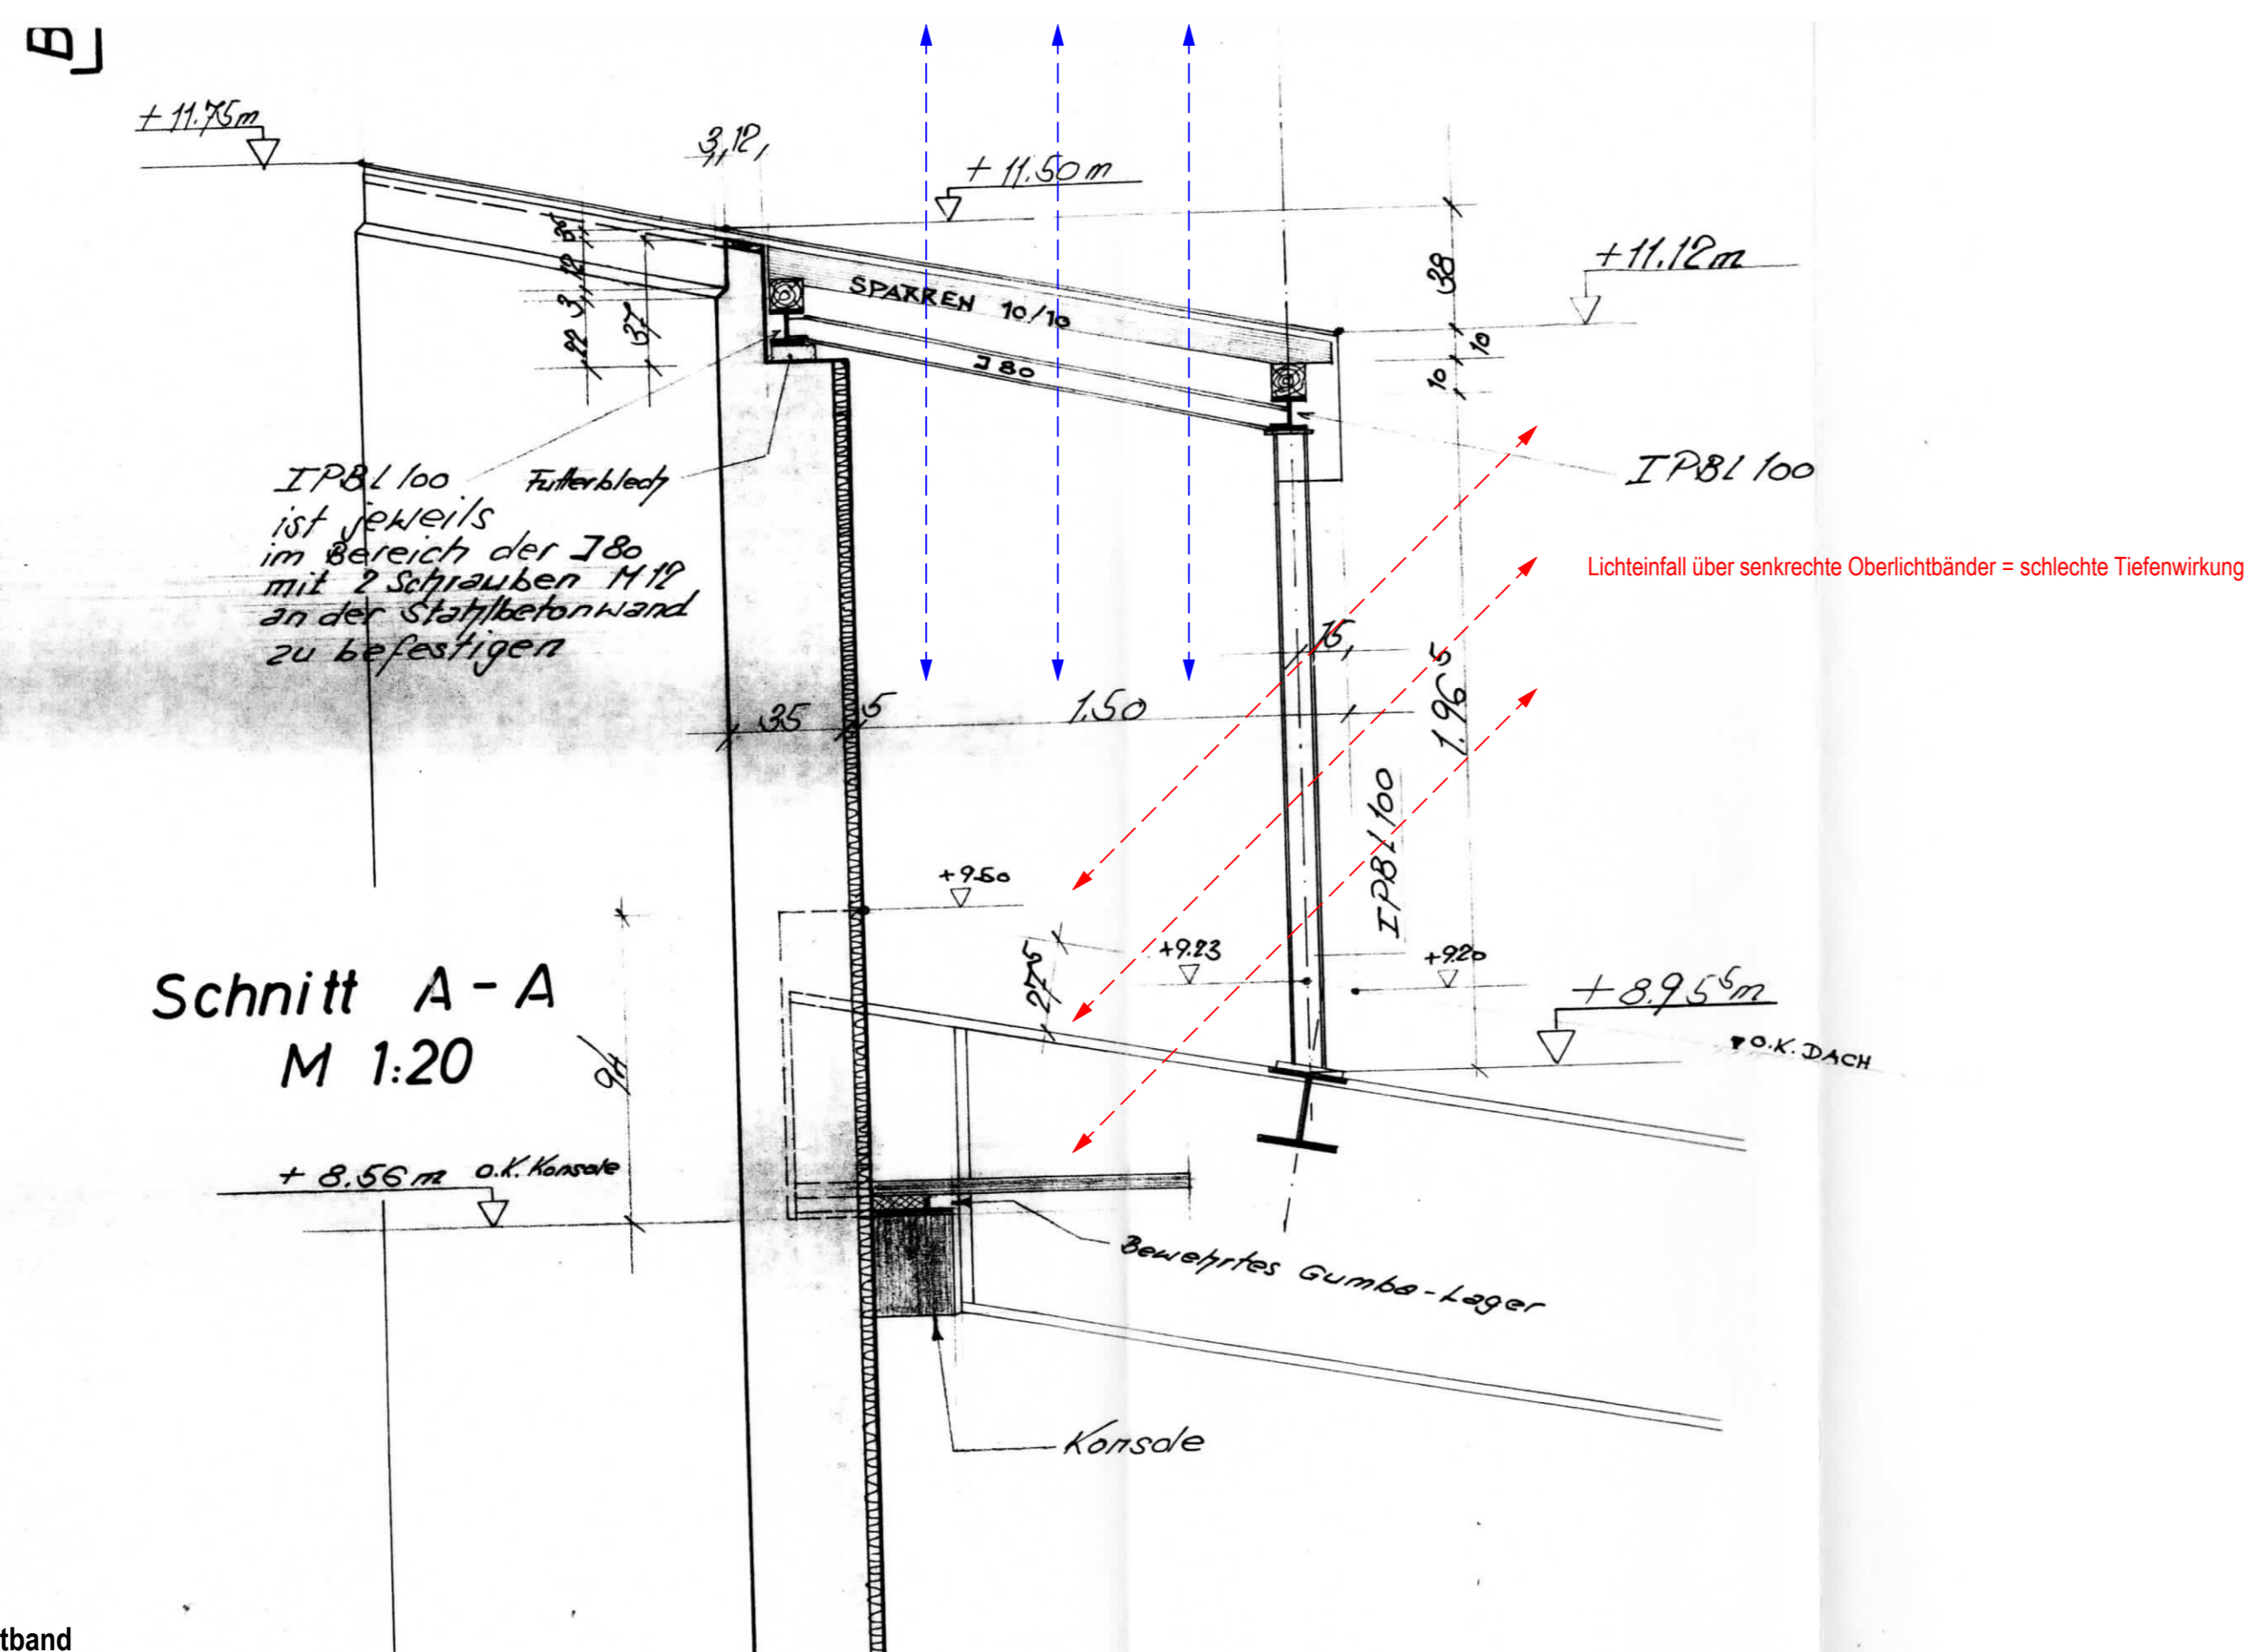 B
+ 11.75m
3 12
+ 11.50m
+11.12m
38
10
10
12
3
22
37
SPARREN 10/10
I 80
IPBL 100 Futterblech
ist jeweils
im Bereich der I80
mit 2 Schrauben M12
an der Stahlbetonwand
zu befestigen
IPBL 100
Lichteinfall über senkrechte Oberlichtbänder = schlechte Tiefenwirkung
15
35
5
1.50
1.96 5
IPBL 100
+9.50
27 5
+9.23
+9.20
+ 8.95 5 m
O.K. DACH
Schnitt A-A
M 1:20
94
+ 8.56 m O.K. Konsole
Bewehrtes Gumba-Lager
Konsole
tband